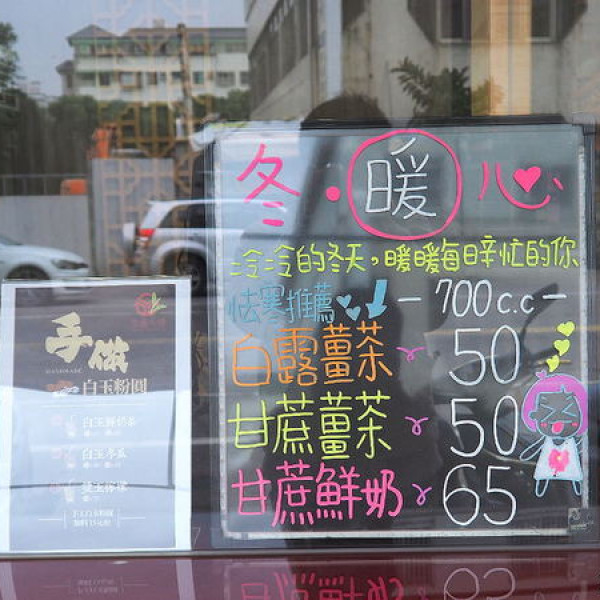 冬・暖心
冷冷的冬天，暖暖每日辛忙的你
怯寒推薦 -700c.c-
白露薑茶 50
甘蔗薑茶 50
甘蔗鮮奶 65
手做
HANDMADE
白玉粉圓
白玉鮮奶茶
白玉冬瓜